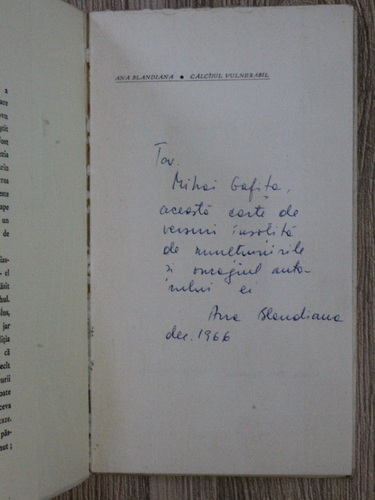 ANA BLANDIANA • CĂLCÎIUL VULNERABIL
Tov.
Mihai Gafița,
această carte de
versuri însoțită
de mulțumirile
și omagiul auto-
rului ei
Ana Blandiana
dec. 1966
a
un
de
el
jur
că